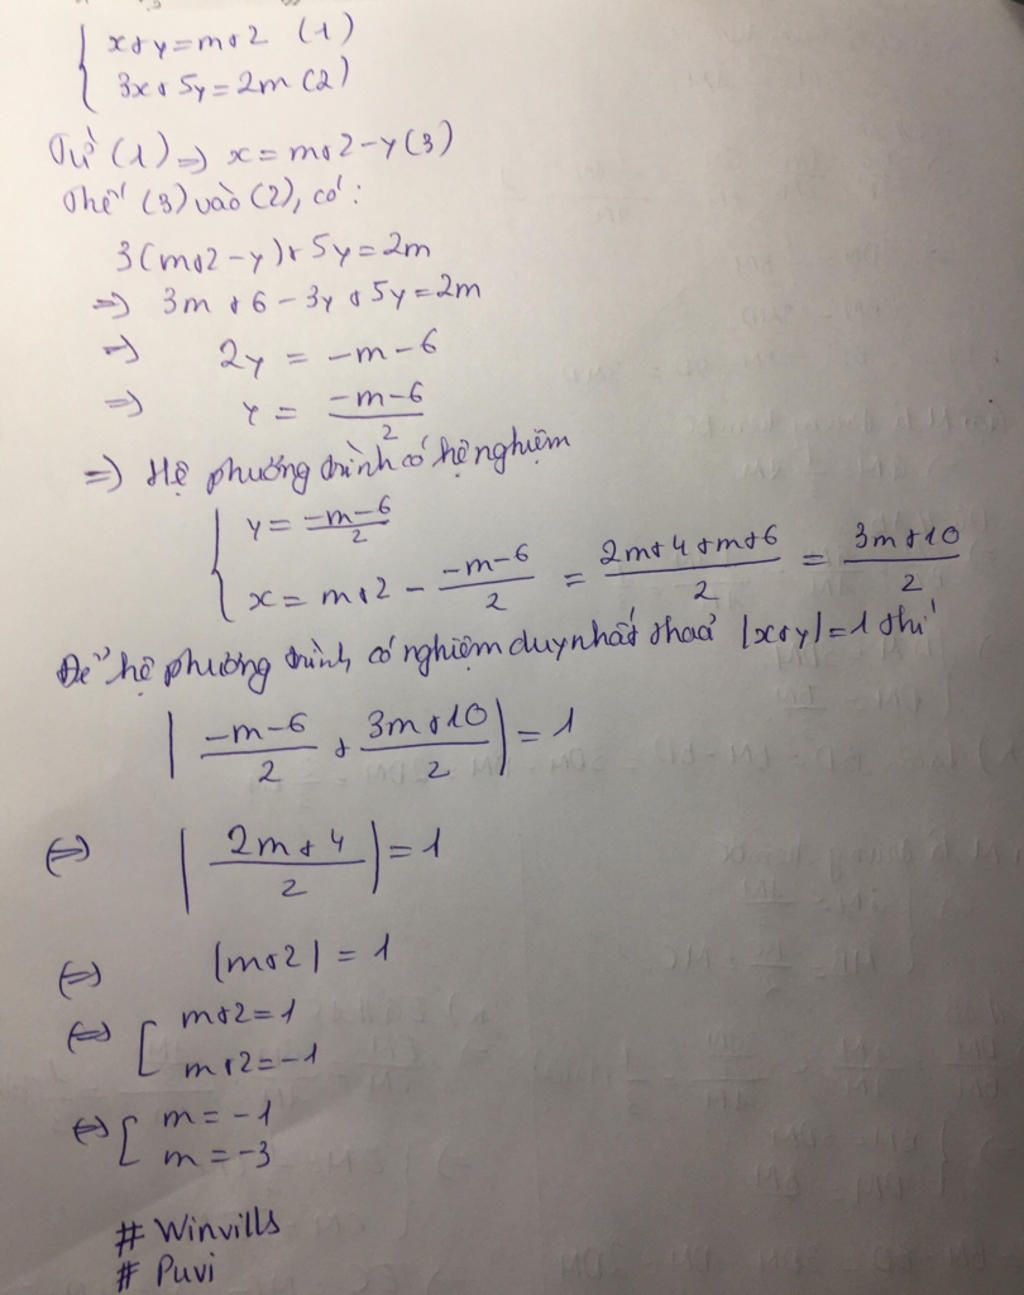 { x+y=m+2 (1)
3x+5y=2m (2)
Từ (1) => x = m+2-y (3)
Thế (3) vào (2), có:
3(m+2-y)+5y=2m
=> 3m+6-3y+5y=2m
=> 2y = -m-6
=> y = \frac{-m-6}{2}
=> Hệ phương trình có hệ nghiệm
{ y = \frac{-m-6}{2}
x = m+2 - \frac{-m-6}{2} = \frac{2m+4+m+6}{2} = \frac{3m+10}{2}
Để hệ phương trình có nghiệm duy nhất thoả |x+y|=1 thì
| \frac{-m-6}{2} + \frac{3m+10}{2} | = 1
<=> | \frac{2m+4}{2} | = 1
<=> |m+2| = 1
<=> [ m+2=1
m+2=-1
<=> [ m=-1
m=-3
# Winvills
# Puvi